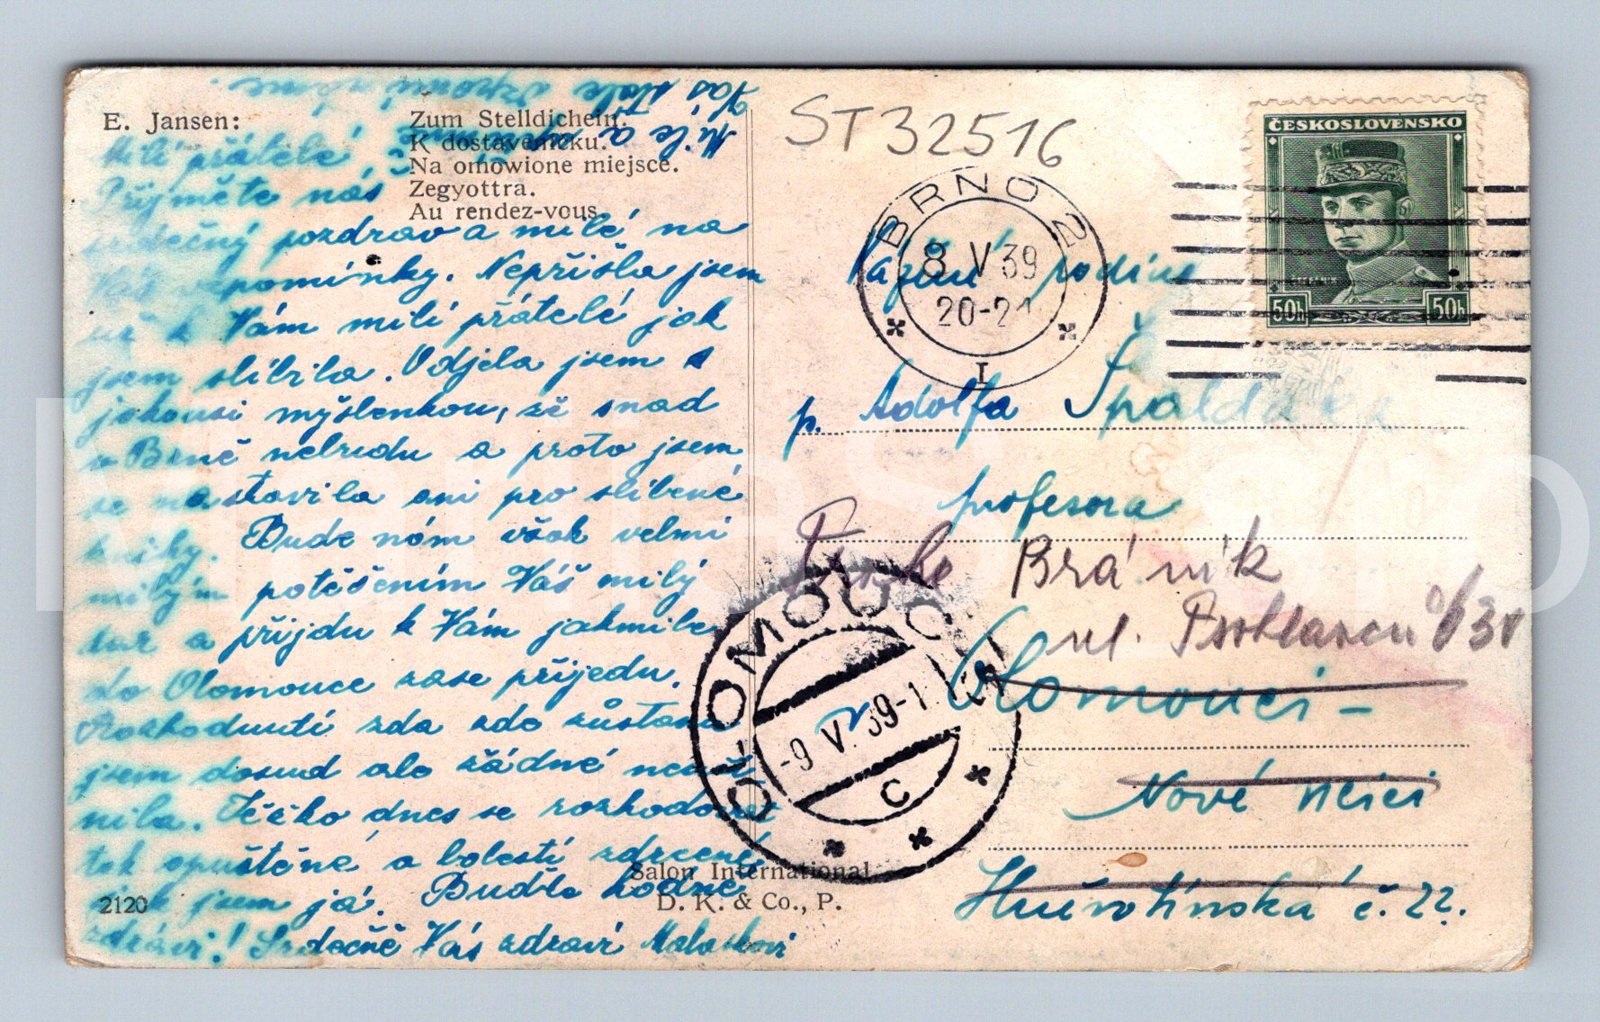 E. Jansen:
Zum Stelldichein.
K dostaveníčku.
Na omówione miejsce.
Zegyottra.
Au rendez-vous.
Milí přátelé
Přijměte náš
srdečný pozdrav a milé na
Vás vzpomínky. Nepřišla jsem
už k Vám milí přátelé jak
jsem slíbila. Odjela jsem s
jakousi myšlenkou, že snad
v Brně nebudu a proto jsem
se nestavila ani pro slíbené
knihy. Bude nám však velmi
milým potěšením Váš milý
a přijdu k Vám jakmile
do Olomouce zase přijedu.
Rozhodnutí zda zde zůstanu
jsem dosud ale žádné neuči
nila. Těžko dnes se rozhodovat
tak opuštěné a bolestí zdrcené,
jak jsem já. Buďte hodně
zdrávi! Srdečně Vás zdraví
2120
Salon International
D. K. & Co., P.
ST 32516
BRNO 2
8 V 39
20-21
1
ČESKOSLOVENSKO
50h 50h
Váženi rodině
p. Adolfa Špalda
profesora
Bránik
ul.
Olomouci -
Nové ulici
Hlučotínská č. 22.
OLOMOUC
-9 V. 39-1
C